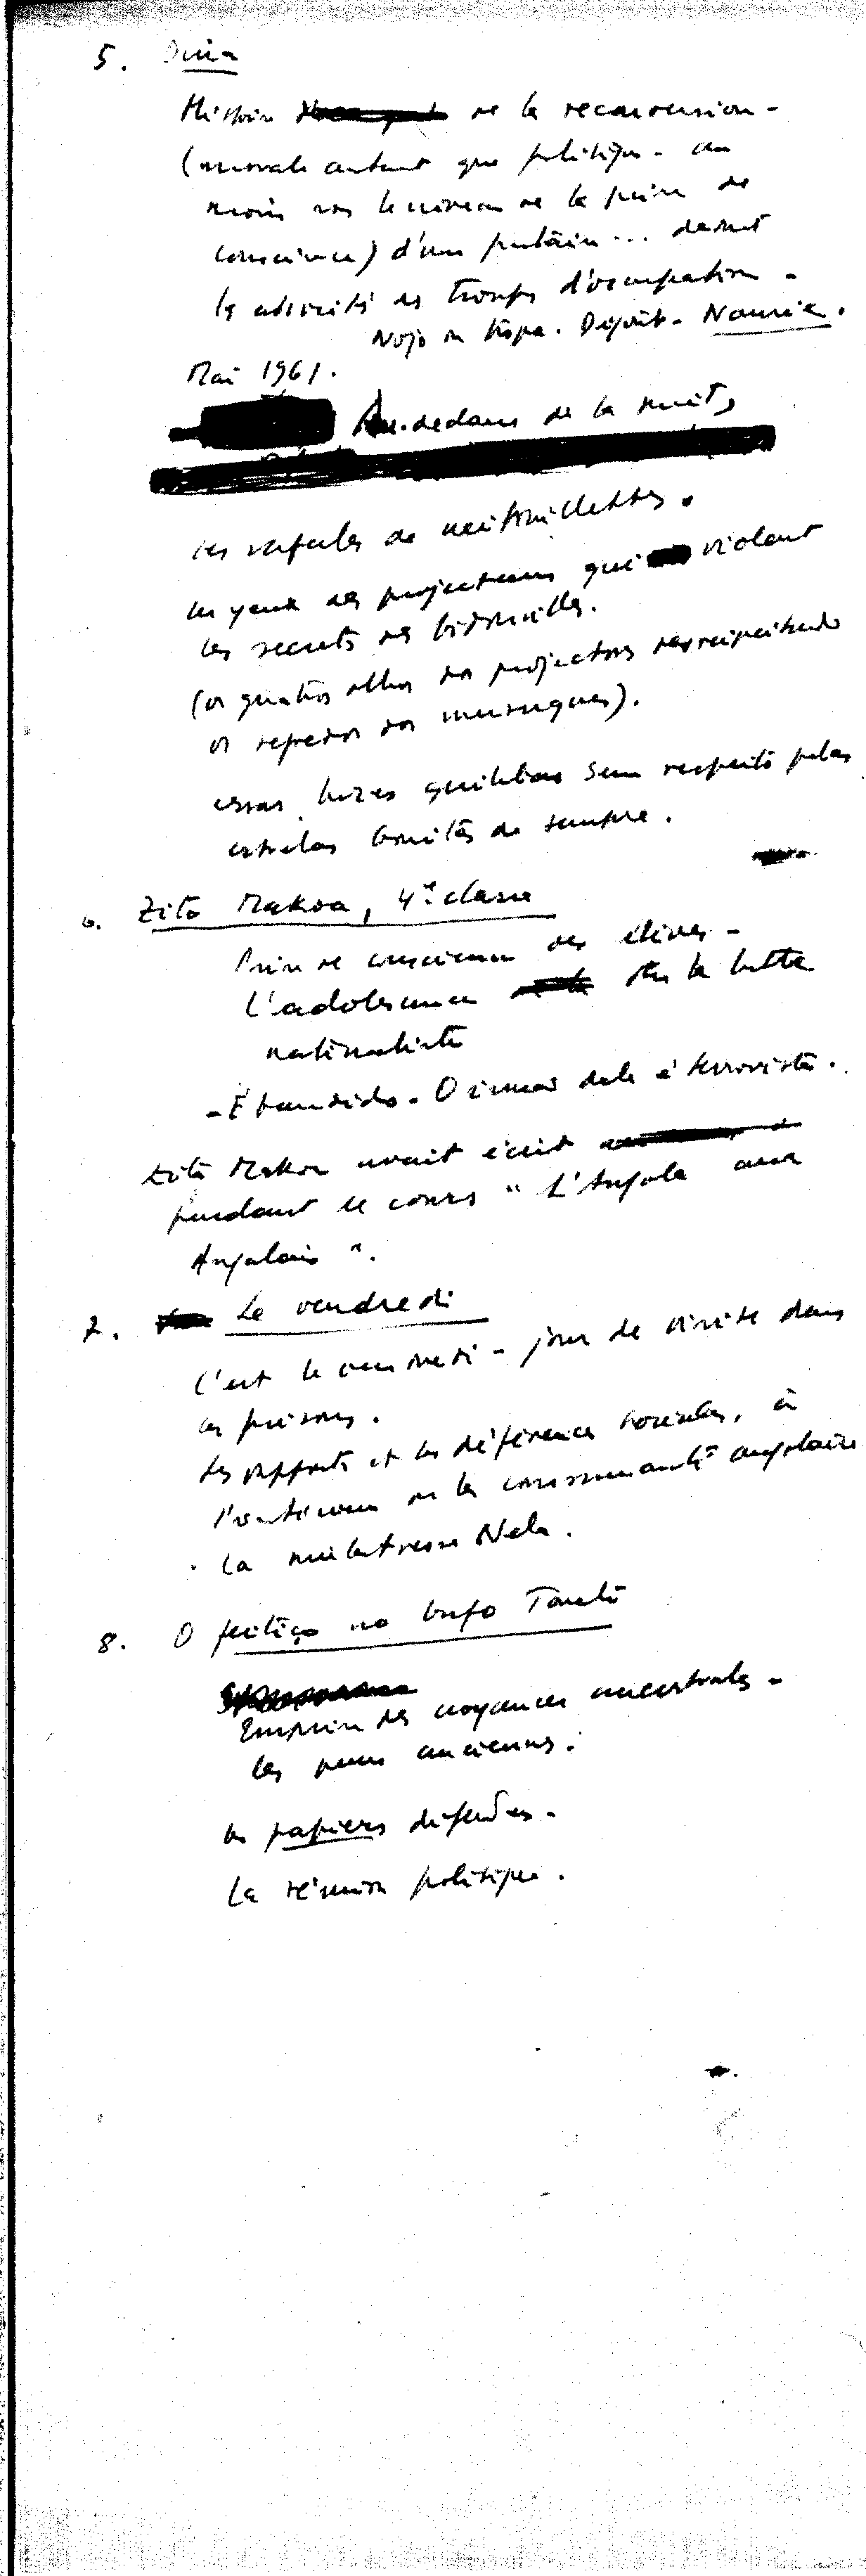 5. Dina
Histoire de la reconversion -
(morale autant que politique - au
moins sous le niveau de la prise de
conscience) d'une putain... devant
les atrocités des troupes d'occupation -
Nojo da tropa. Dégoût - Nausée.
Mai 1961.
Au-dedans de la nuit,
les rafales de mitraillettes.
les yeux des projecteurs qui violent
les secrets des bidonvilles.
(os quatro olhos dos projectores
os segredos dos musseques).
essas luzes sem respeito pelas
estrelas bonitas de sempre.
6. Zito Makoa, 4ª classe
Prise de conscience des élèves -
L'adolescence la lutte
nationaliste
- É bandido. O irmão dele é terrorista.
Zito Makoa avait écrit
pendant le cours "L'Angola aux
Angolais".
7. Le vendredi
C'est le vendredi - jour de visite dans
les prisons.
Les rapports et les différences sociales, à
l'intérieur de la communauté angolaise
. La mulâtresse Nela.
8. O feitiço no bufo Toneto
Emprise des croyances ancestrales -
les peurs anciennes.
les papiers défendus -
La réunion politique.